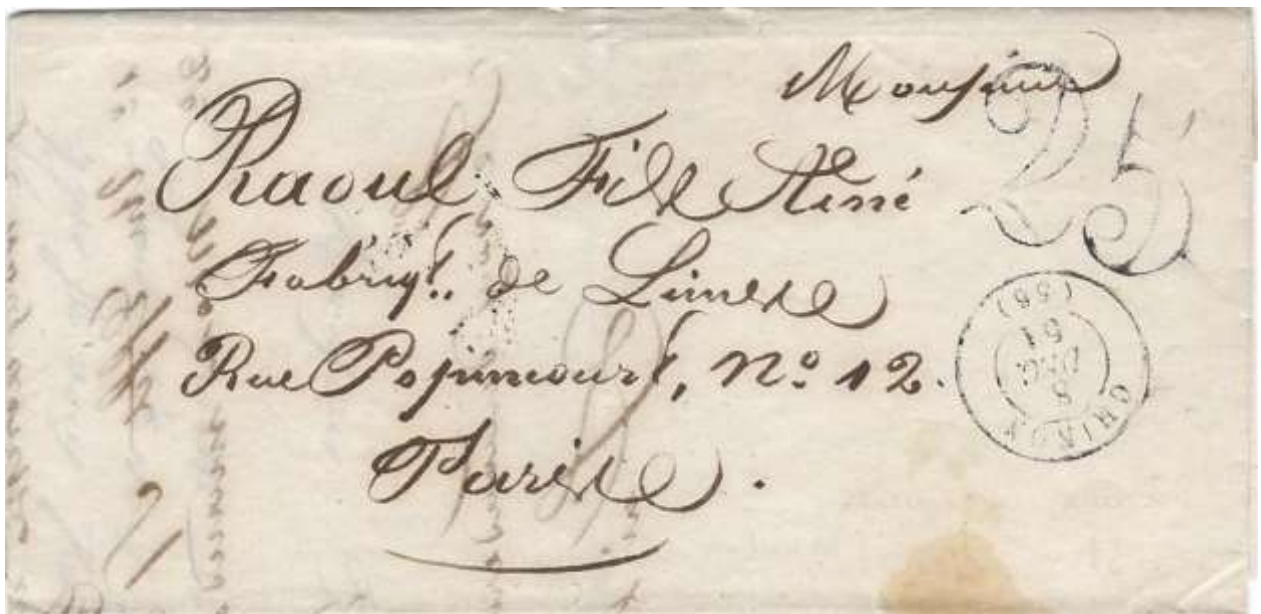 Monsieur
25
Raoul Fils Ainé
Fabriqt. de Limes
Rue Popincourt, No 12.
Paris.
CHINON
8
51
(36)